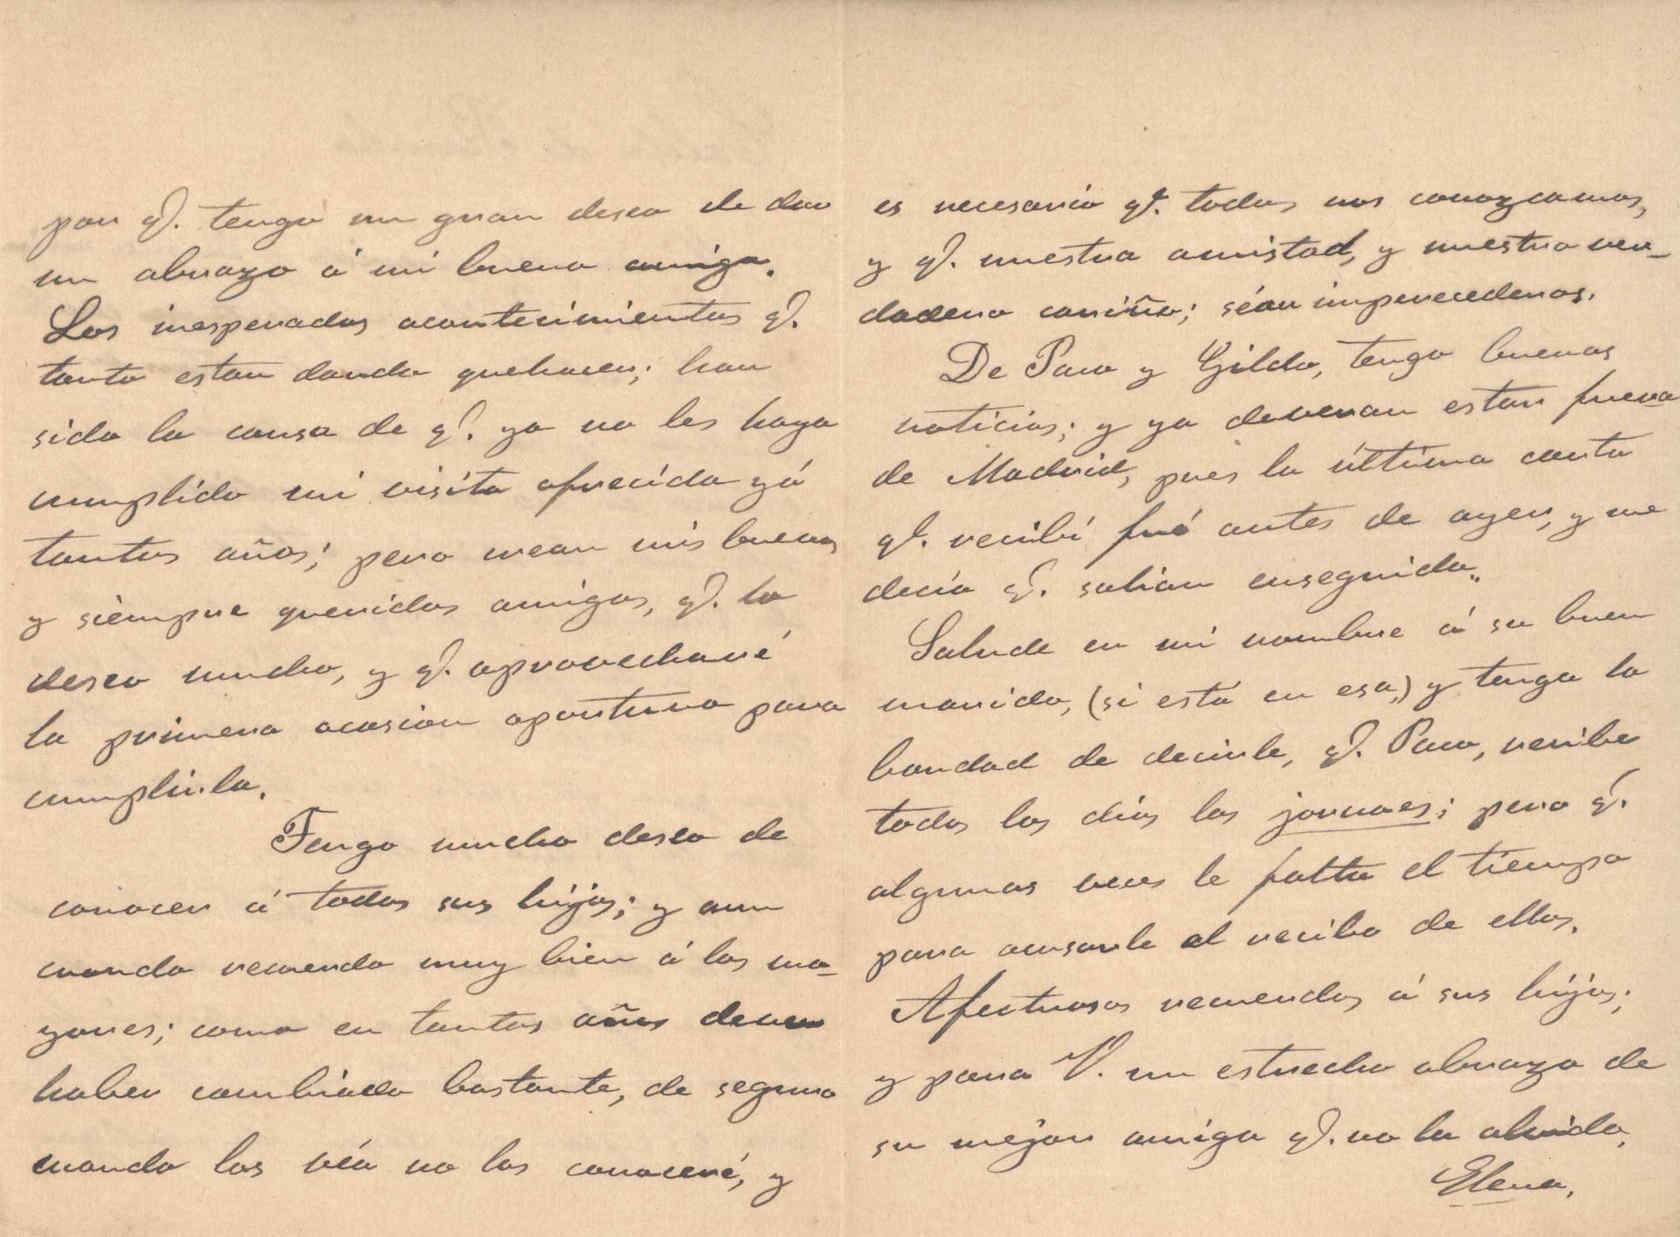 por q.e tengo un gran deseo de dar
un abrazo á mi buena amiga.
Los inesperados acontecimientos q.e
tanto estan dando quehacer; han
sido la causa de q.e ya no les haya
cumplido mi visita ofrecida yá
tantos años; pero crean mis buenos
y siempre queridos amigos, q.e lo
deseo mucho, y q.e aprovecharé
la primera ocasion oportuna para
cumplirla.
Tengo mucho deseo de
conocer á todos sus hijos; y aun
cuando recuerdo muy bien á los ma-
yores; como en tantos años deven
haber cambiado bastante, de seguro
cuando los véa no los conoceré, y
es necesario q.e todos nos conozcamos,
y q.e nuestra amistad, y nuestro ver-
dadero cariño; séan imperecederos.
De Paco y Gilda, tengo buenas
noticias; y ya deveran estar fuera
de Madrid, pues la última carta
q.e recibí fué antes de ayer, y me
decía q.e salian enseguida.
Salude en mi nombre á su buen
marido, (si está en esa,) y tenga la
bondad de decirle, q.e Paco, recibe
todos los días los jornaes; pero q.e
algunas veces le falta el tiempo
para acusarle el recibo de ellos.
Afectuosos recuerdos á sus hijos;
y para V. un estrecho abrazo de
su mejor amiga q.e no la olvida,
Elena.